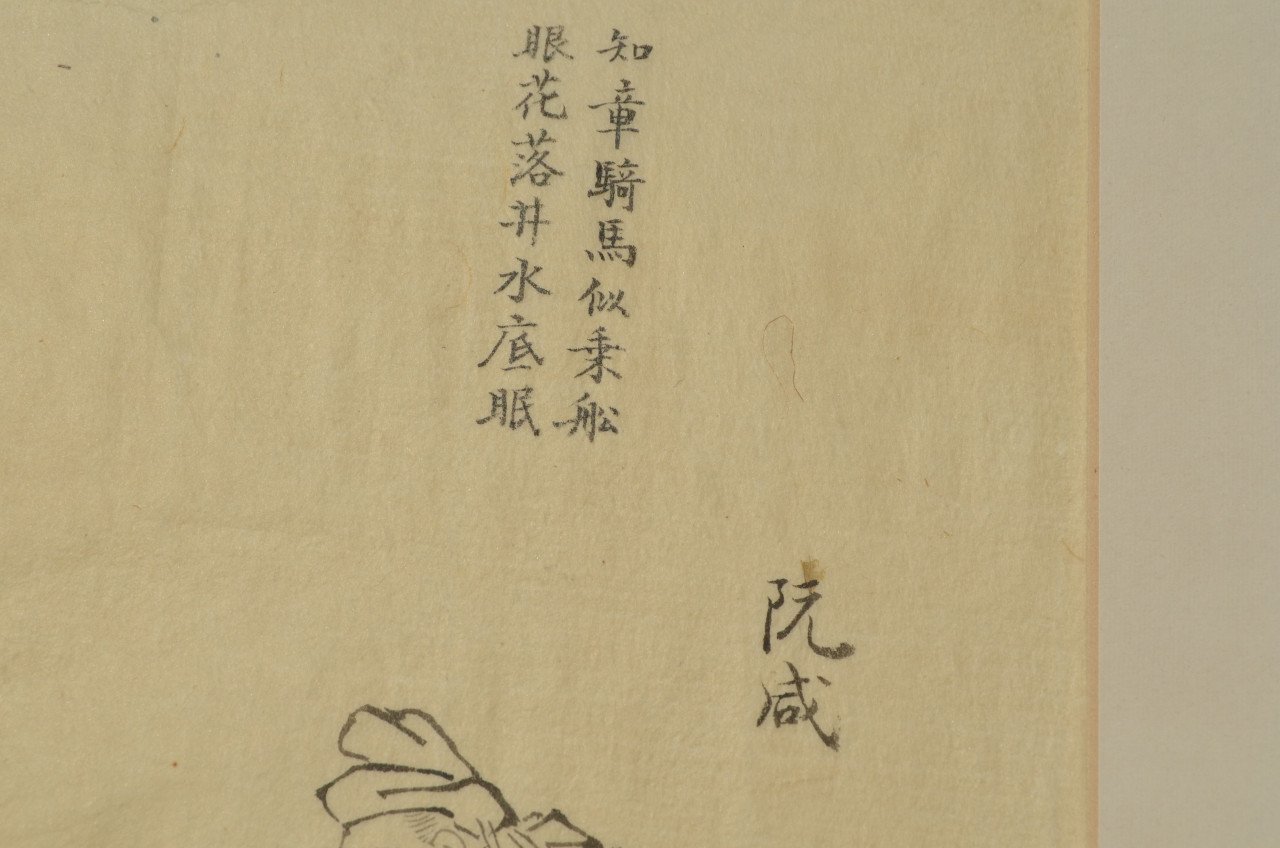 知章騎馬似乗舩
眼花落井水底眠
阮咸